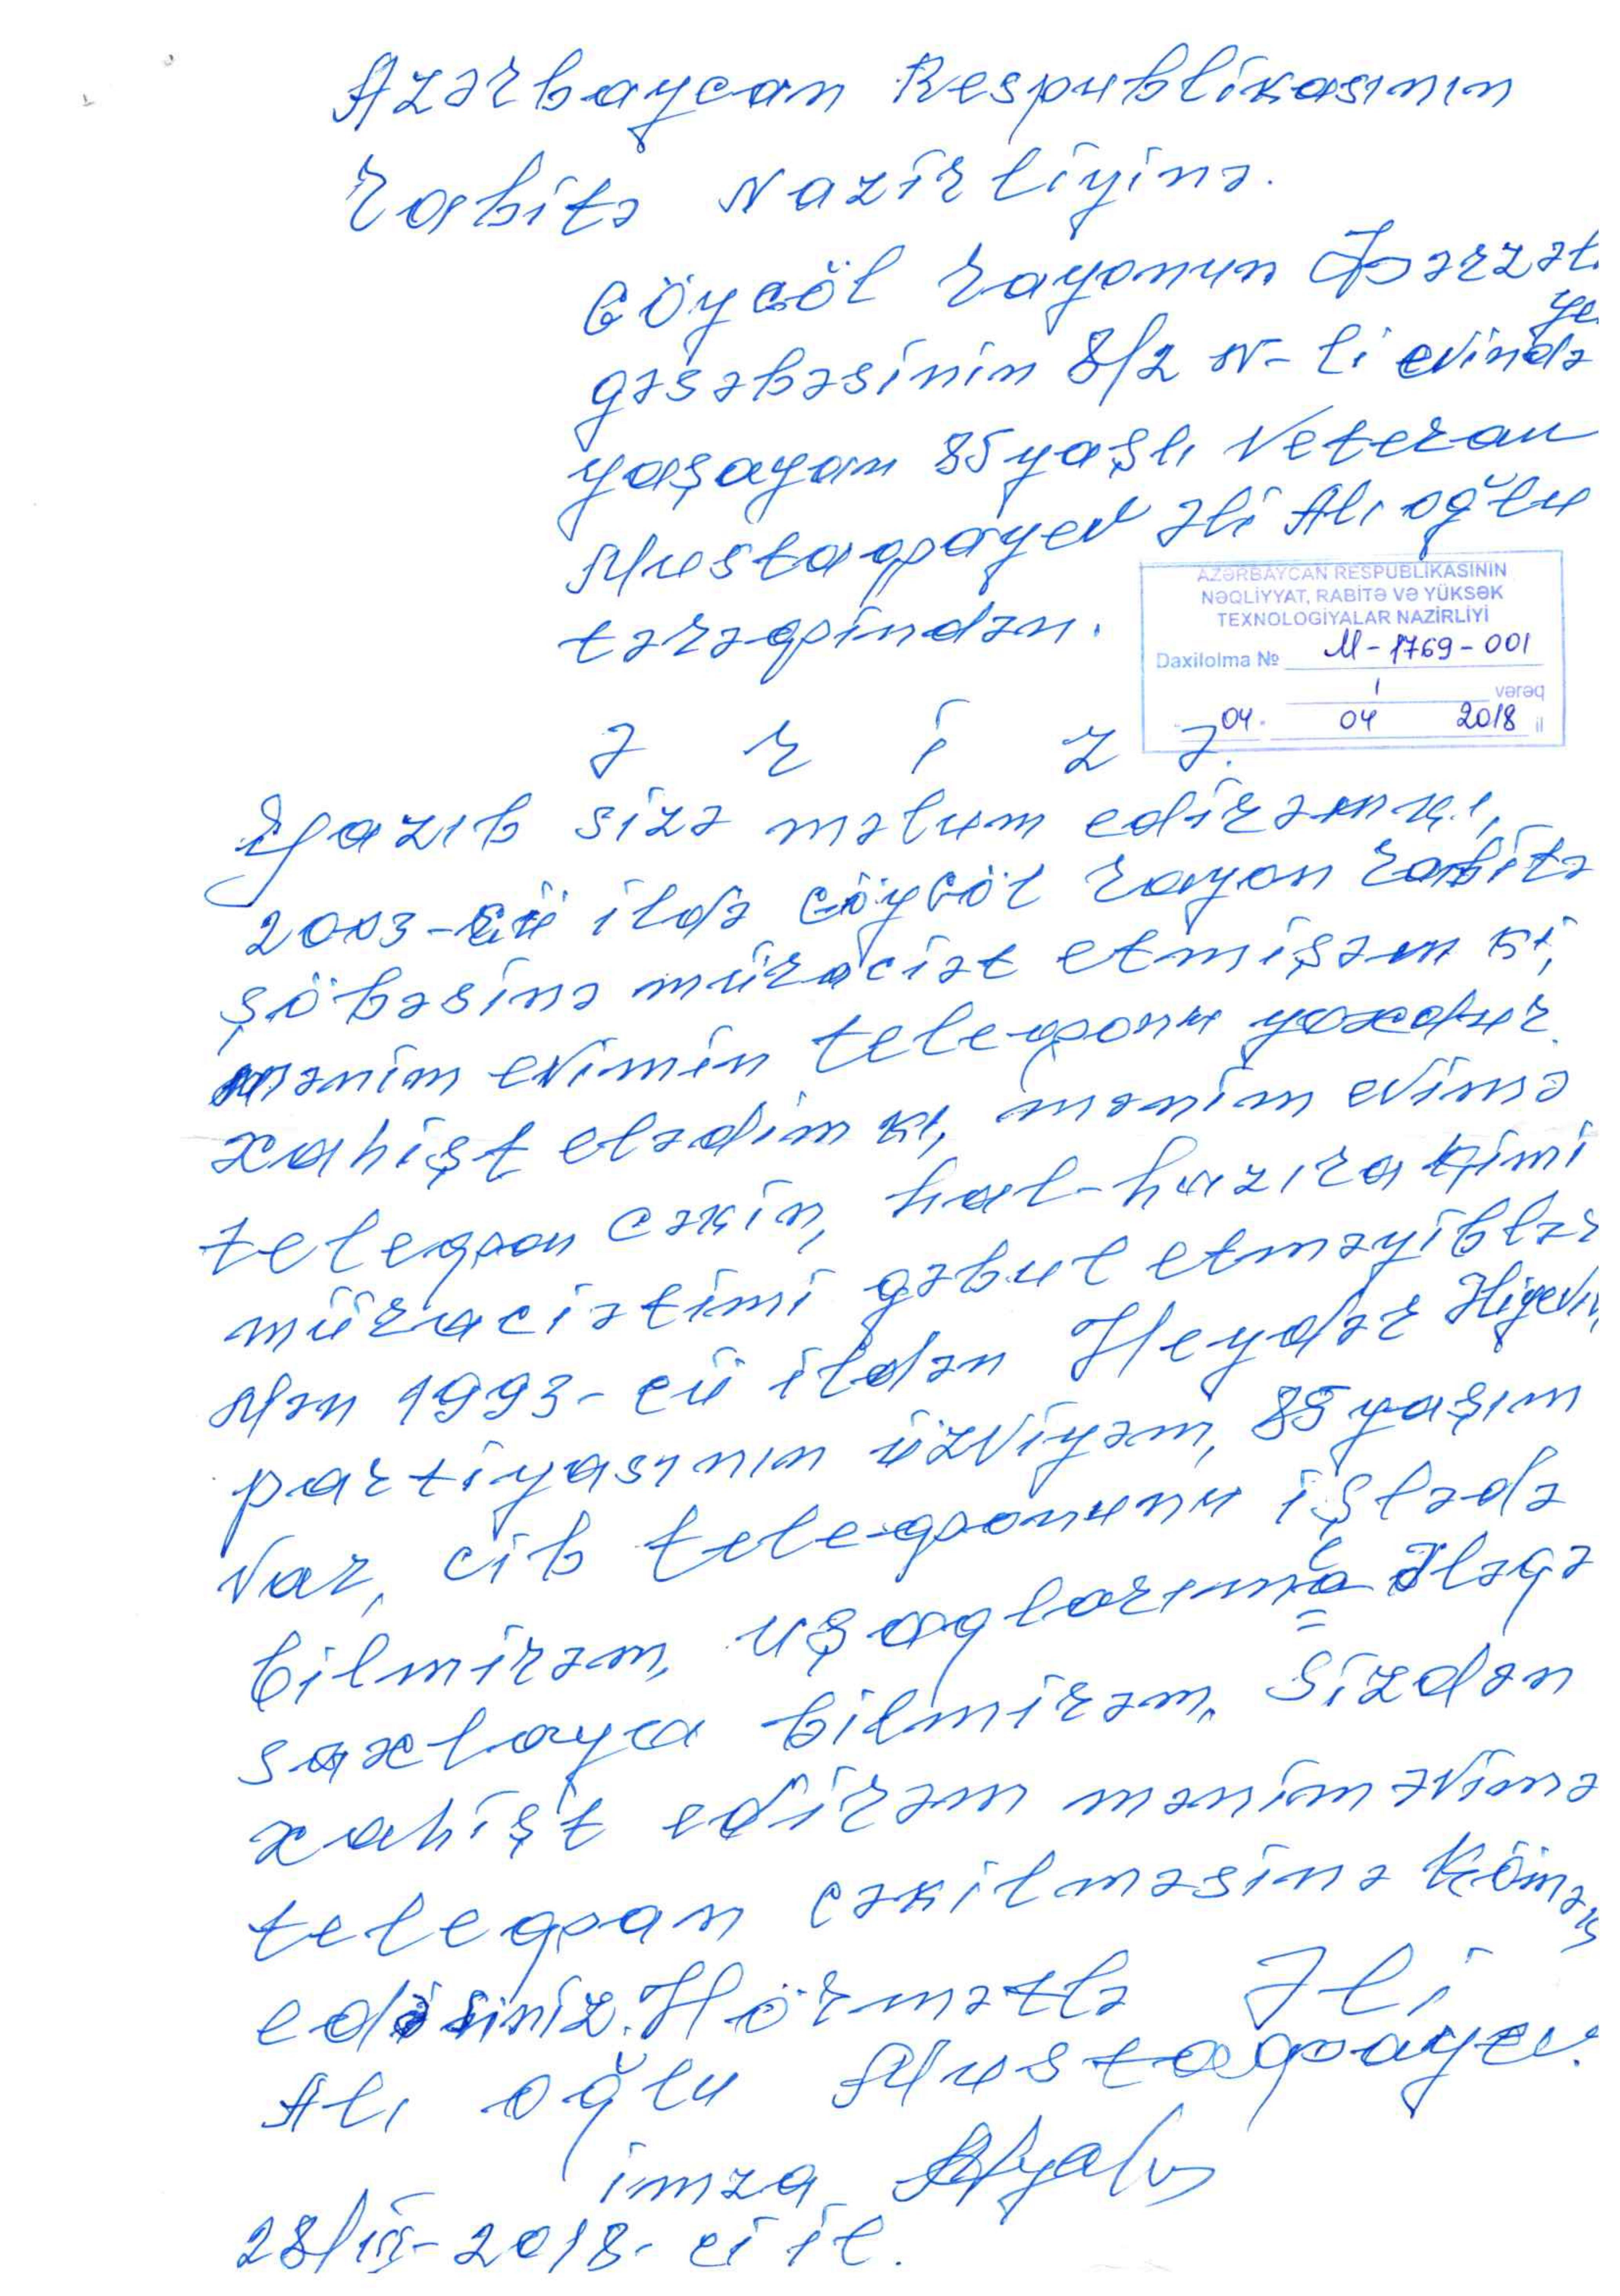 Azərbaycan Respublikasının
Rabitə Nazirliyinə.
Göygöl rayonun
qəsəbəsinin 8/2 N-li evində
yaşayan 85 yaşlı Veteran
Mustafayev Əli Alı oğlu
tərəfindən.
AZƏRBAYCAN RESPUBLİKASININ
NƏQLİYYAT, RABİTƏ VƏ YÜKSƏK
TEXNOLOGİYALAR NAZİRLİYİ
Daxilolma № M-1769-001
1 vərəq
04. 04 2018 il
Ə r i z ə.
Yazıb sizə məlum edirəmki,
2003-cü ildə Göygöl rayon rabitə
şöbəsinə müraciət etmişəm ki,
mənim evimin telefonu yoxdur.
xahişt elədim ki, mənim evimə
telefon cəkin, hal-hazıra kimi
müraciətimi qəbul etməyiblər
Mən 1993-cü ildən Heydər Əliyevin
partiyasının üzviyəm, 85 yaşım
var, cib telefonunu işlədə
bilmirəm, uşaqlarıma əlaqə
saxlaya bilmirəm. Sizdən
xahişt edirəm mənim əvimə
telefon cəkilməsinə kömək
edəsiniz. Hörmətlə Əli
Alı oğlu Mustafayev.
imza
28/III-2018-ci il.